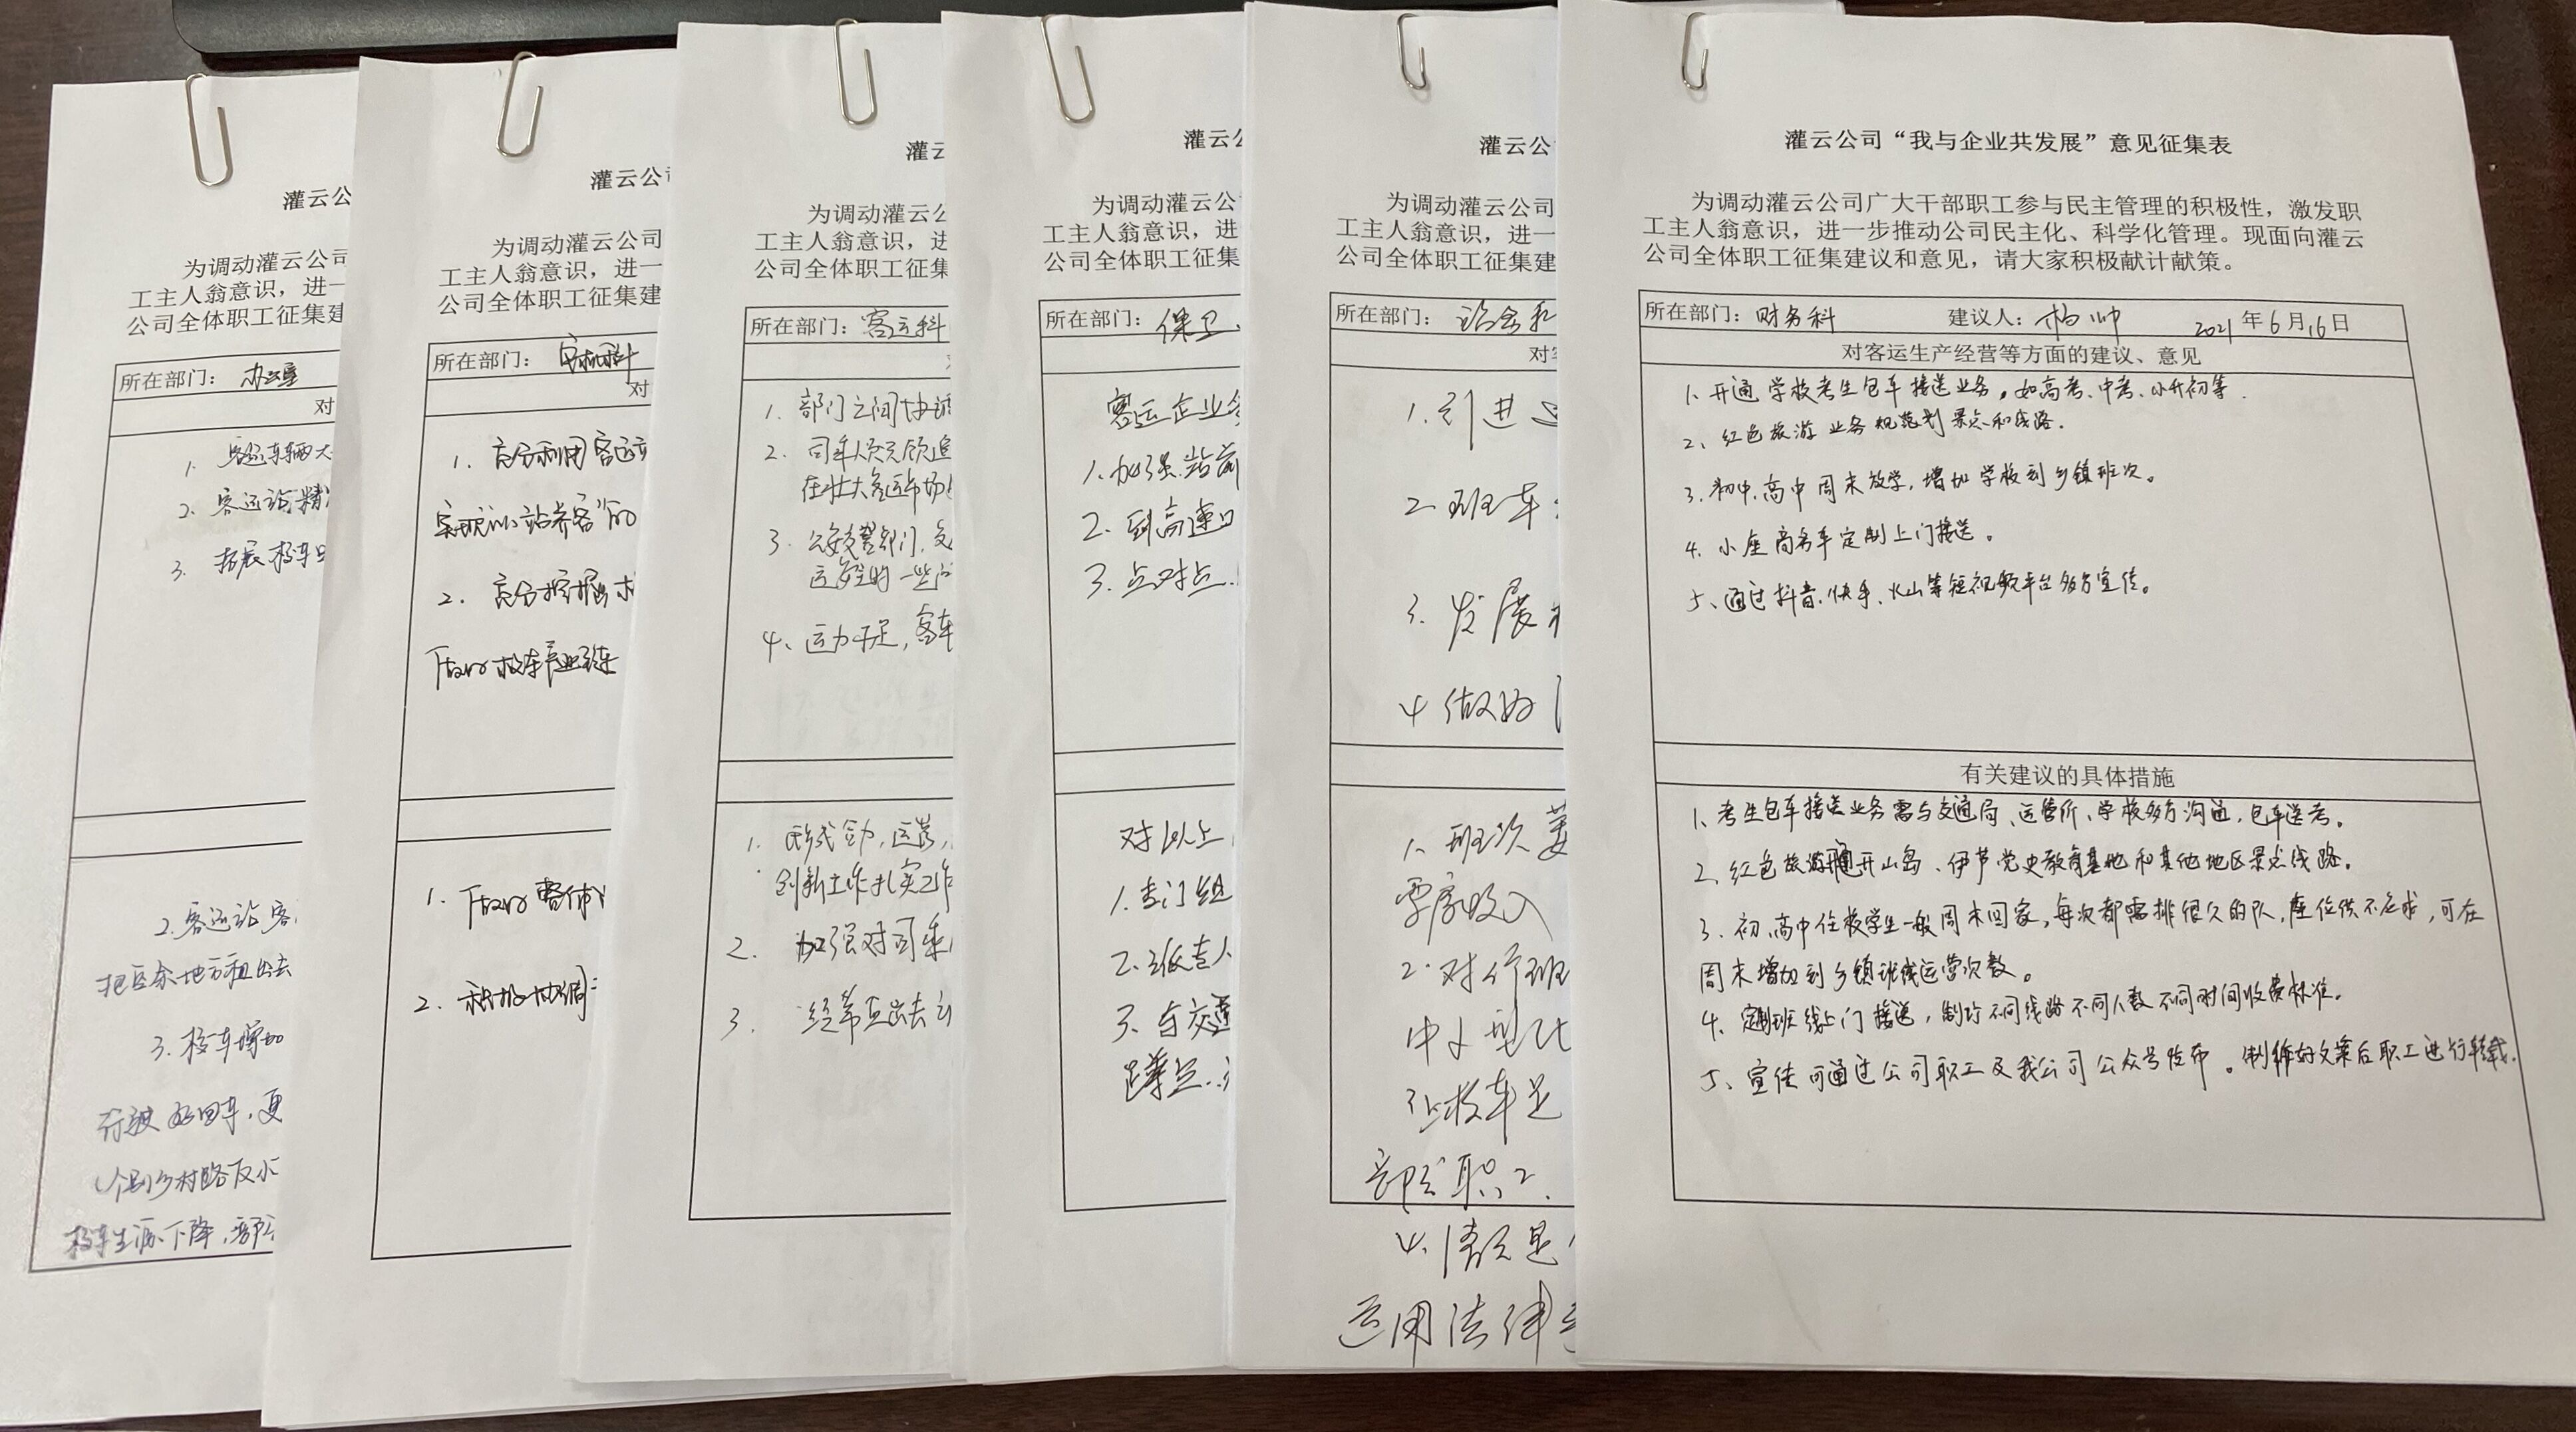 灌云公
为调动灌云公司
工主人翁意识，进一
公司全体职工征集建
所在部门：办公室
对
1. 客运车辆大
2. 客运站精
3. 拓展校车
2.客运站客
把区余地方租出去
3.校车增加
校车生源下降，部
灌云公司
为调动灌云公司
工主人翁意识，进一
公司全体职工征集建
所在部门：安机科
对
1. 充分利用客运
实现“以站养客”的
2. 充分挖掘
1.
2. 积极协调
灌云
为调动灌云公
工主人翁意识，进
公司全体职工征集
所在部门：客运科
1. 部门之间协调
2. 司乘人员
在壮大客运市场
3. 公安交警部门，交
运安全的一些问
4、运力不足，客车
1. 形成合力，
创新工作扎实工作
2. 加强对司乘
3. 经常走出去
灌云公
为调动灌云公
工主人翁意识，进
公司全体职工征集
所在部门：保卫
客运企业
1.加强站前
2. 到高速口
3. 点对点
对以上
1.专门组
2.派专人
3、与交通
灌云公
为调动灌云公司
工主人翁意识，进一
公司全体职工征集建
所在部门：
对
1.引进
2 班车
3. 发展
4 做好
1、班次
票房收入
2. 对行班
中小型
3、校车是
部分职工.
4.
运用法律
灌云公司“我与企业共发展”意见征集表
为调动灌云公司广大干部职工参与民主管理的积极性，激发职
工主人翁意识，进一步推动公司民主化、科学化管理。现面向灌云
公司全体职工征集建议和意见，请大家积极献计献策。
所在部门：财务科 建议人：杨帅 2021年6月16日
对客运生产经营等方面的建议、意见
1、开通学校考生包车接送业务，如高考、中考、小升初等.
2、红色旅游业务规范划景点和线路.
3. 初中、高中周末放学，增加学校到乡镇班次。
4. 小座商务车定制上门接送。
5、通过抖音、快手、火山等短视频平台多方宣传。
有关建议的具体措施
1、考生包车接送业务需与交通局、运管所、学校多方沟通，包车送考。
2、红色旅游开通开山岛、伊芦党史教育基地和其他地区景点线路。
3. 初、高中住校学生一般周末回家，每次都需排很久的队，座位供不应求，可在
周末增加到乡镇班线运营次数。
4、定制班线上门接送，制订不同线路不同人数不同时间收费标准。
5、宣传可通过公司职工及我公司公众号发布。制作好文案后职工进行转载.